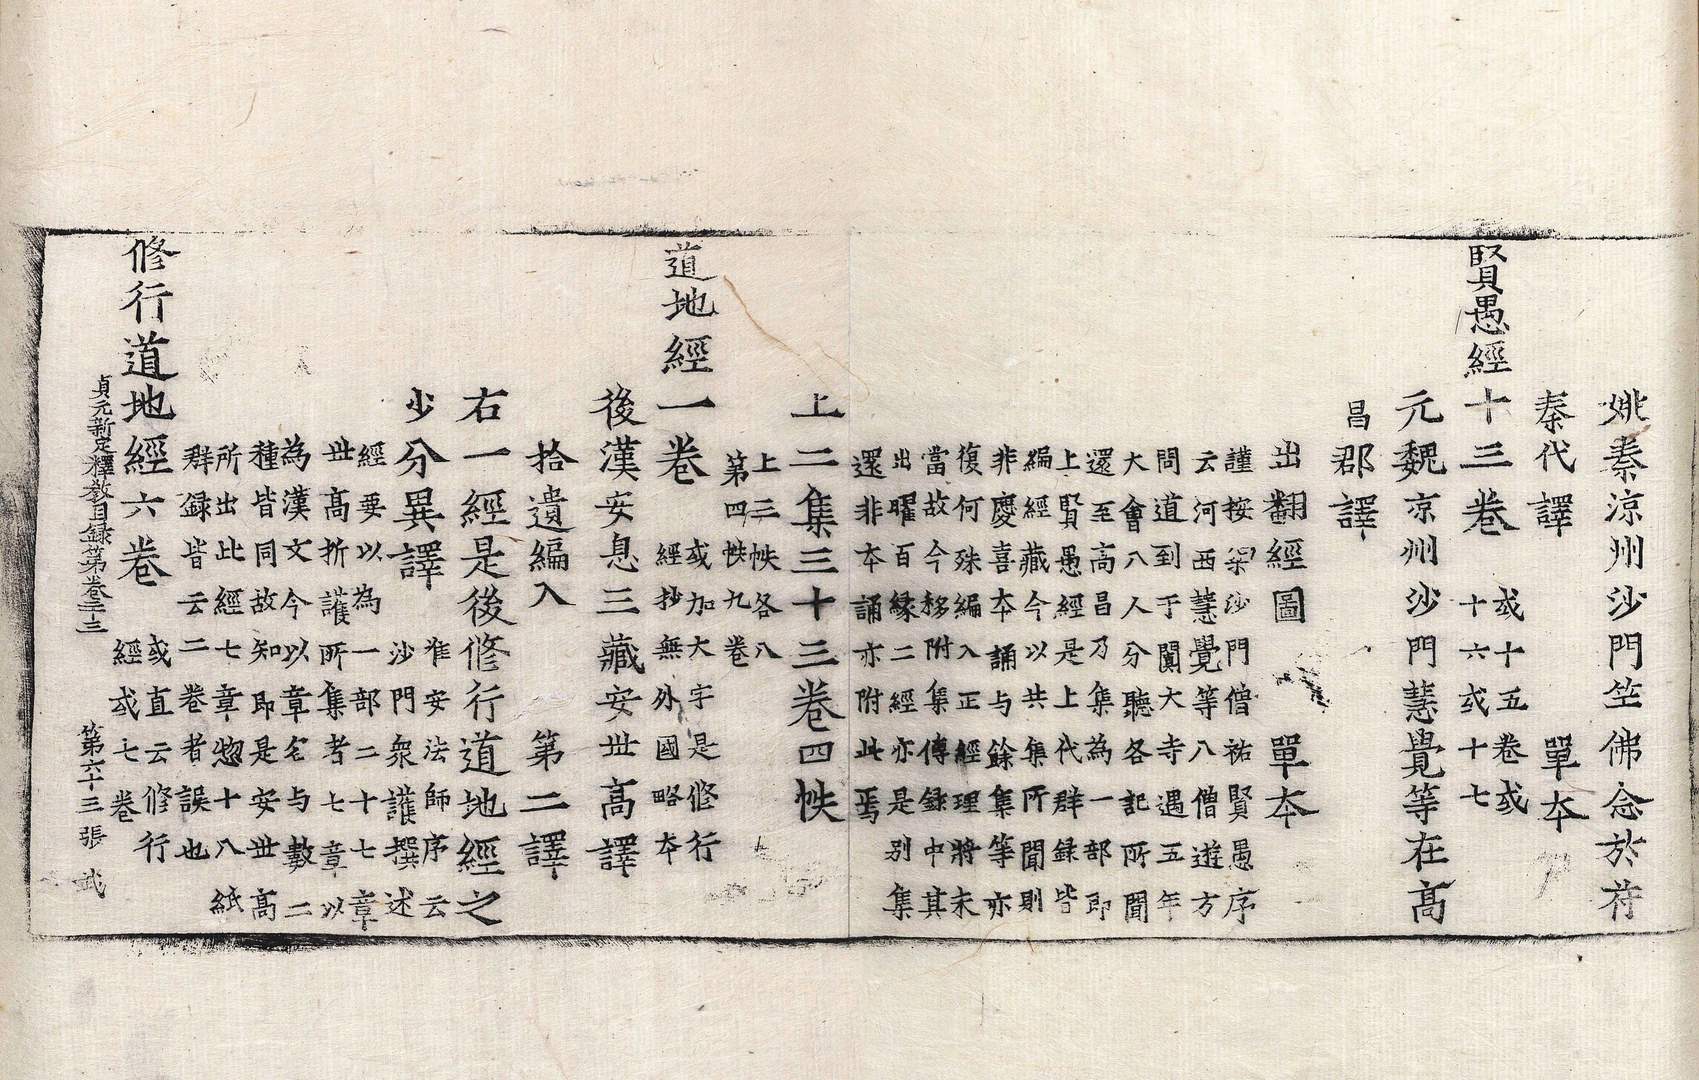 姚秦涼州沙門竺佛念於苻
秦代譯 單本
賢愚經十三卷 或十五卷或
十六或十七
元魏凉州沙門慧覺等在高
昌郡譯
出翻經圖 單本
謹按梁沙門僧祐賢愚序
云河西慧覺等八僧遊方
問道到于闐大寺遇五年
大會八人分聽各記所聞
還至高昌乃集為一部即
上賢愚經是上代群録皆
編經藏今以共集所聞則
非慶喜本誦与餘集等亦
復何殊編入正經理將未
當故今移附集傳録中其
出曜百縁二經亦是別集
還非本誦亦附此焉
上二集三十三卷四帙
上三帙各八
第四帙九卷
道地經一卷 或加大字是修行
經抄無外國略本
後漢安息三藏安世高譯
拾遺編入 第二譯
右一經是後修行道地經之
少分異譯 准安法師序云
沙門衆護撰述
經要以為一部二十七章
世高折護所集者七章以
為漢文今以章名与數二
種皆同故知即是安世高
所出此經七章惣十八紙
群録皆云二卷者誤也
修行道地經六卷 或直云修行
經或七卷
貞元新定釋教目録第卷二十三 第六十三張 武